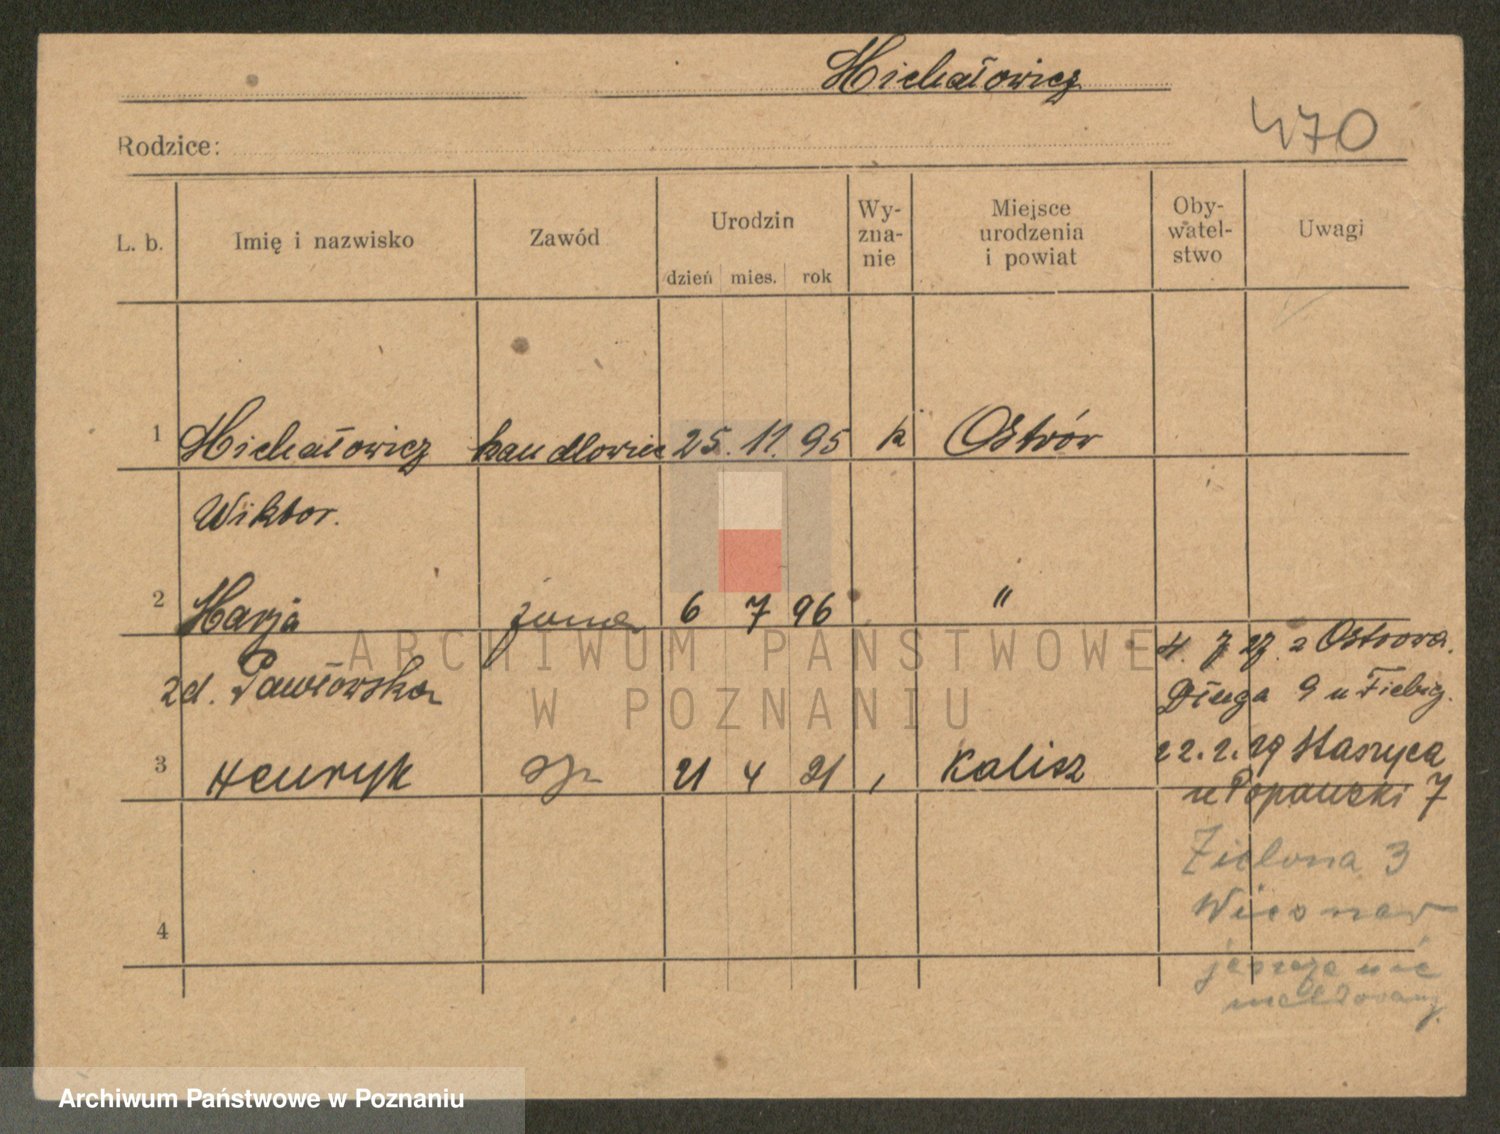 Michałowicz
470
Rodzice:
L. b. Imię i nazwisko Zawód Urodzin dzień mies. rok Wy-zna-nie Miejsce urodzenia i powiat Oby-watel-stwo Uwagi
1 Michałowicz handlowiec 25. 11. 95 k Ostrów
Wiktor.
2 Marja żona 6 7 96 "
zd. Pawłowska
4. 7. 27. z Ostrowa.
Długa 9 u Fiebig.
3 Henryk syn 21 4 21 Kalisz
22. 2. 29 Staszyca
u Popauski 7
Zielona 3
jeszcze nie
meldowany.
4
ARCHIWUM PAŃSTWOWE
W POZNANIU
Archiwum Państwowe w Poznaniu